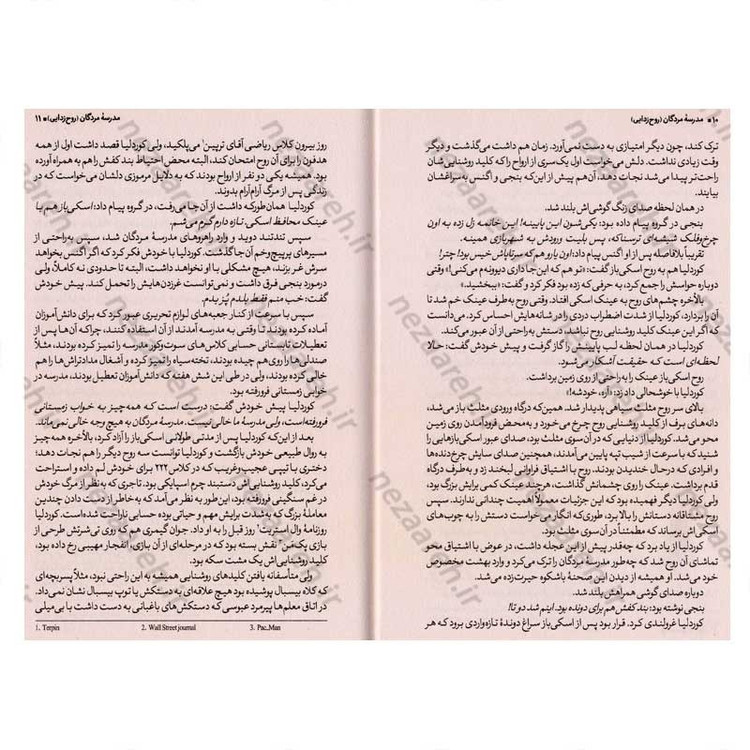 ۱۰ ▪ مدرسهٔ مردگان (روح‌زدایی)
ترک کند، چون دیگر امتیازی به دست نمی‌آورد. زمان هم داشت می‌گذشت و دیگر
وقت زیادی نداشت. دلش می‌خواست اول یک‌سری از ارواح را که کلید روشنایی‌شان
راحت‌تر پیدا می‌شد نجات دهد، آن‌هم پیش از این‌که بنجی و اگنس به‌سراغشان
بیایند.
در همان لحظه صدای زنگ گوشی‌اش بلند شد.
بنجی در گروه پیام داده بود: یکی‌شون این پایینه! این خانمه زل زده به اون
چرخ‌وفلک شیشه‌ای ترسناکه، پس بلیت ورودش به شهربازی همینه.
تقریباً بلافاصله پس از او اگنس پیام داد: اون یارو هم که سرتاپاش خیس بود! چترا!
کوردلیا هم به روح اسکی‌باز گفت: «تو هم که این‌جا داری دیوونه‌م می‌کنی!» وقتی
دوباره حواسش را جمع کرد، به حرفی که زده بود فکر کرد و گفت: «ببخشید.»
بالأخره چشم‌های روح به عینک اسکی افتاد. وقتی روح به‌طرف عینک خم شد تا
آن را بردارد، کوردلیا از شدت اضطراب دردی را در شانه‌هایش احساس کرد. می‌دانست
که اگر این عینک کلید روشنایی روح نباشد، دستش به‌راحتی از آن عبور می‌کند.
کوردلیا در همان لحظه لب پایینش را گاز گرفت و پیش خودش گفت: حالا
لحظه‌ای است که حقیقت آشکار می‌شود.
روح اسکی‌باز عینک را به‌راحتی از روی زمین برداشت.
کوردلیا با خوشحالی داد زد: «آره، خودشه!»
بالای سر روح مثلث سیاهی پدیدار شد. همین‌که درگاه ورودی مثلث باز می‌شد،
دانه‌های برف از کلید روشنایی روح چرخ می‌خورد و به‌محض فرودآمدن روی زمین
محو می‌شد. کوردلیا از دنیایی که در آن‌سوی مثلث بود، صدای عبور اسکی‌بازهایی را
شنید که با سرعت از شیب تپه پایین می‌آمدند، همچنین صدای سایش چرخ‌دنده‌ها
و افرادی که درحال خندیدن بودند. روح با اشتیاق فراوانی لبخند زد و به‌طرف درگاه
قدم برداشت. عینک را روی چشمانش گذاشت، هرچند عینک کمی برایش بزرگ بود،
ولی کوردلیا دیگر فهمیده بود که این جزئیات معمولاً اهمیت چندانی ندارند. سپس
روح مشتاقانه دستانش را بالا برد، طوری‌که انگار می‌خواست دستش را به چوب‌های
اسکی‌اش برساند که مطمئناً در آن‌سوی مثلث بود.
کوردلیا از یاد برد که چه‌قدر پیش از این عجله داشت، در عوض با اشتیاق محو
تماشای آن روح شد که چه‌طور مدرسهٔ مردگان را ترک می‌کرد و وارد بهشت مخصوص
خود می‌شد. او همیشه از دیدن این صحنهٔ باشکوه حیرت‌زده می‌شد.
دوباره صدای گوشی همراهش بلند شد.
بنجی نوشته بود: بند کفش هم برای دونده بود. اینم شد دو تا!
کوردلیا غرولندی کرد. قرار بود پس از اسکی‌باز سراغ دوندهٔ تازه‌واردی برود که هر
مدرسهٔ مردگان (روح‌زدایی) ▪ ۱۱
روز بیرون کلاس ریاضی آقای ترپین¹ می‌پلکید، ولی کوردلیا قصد داشت اول از همه
هدفون را برای آن روح امتحان کند، البته محض احتیاط بند کفش را هم به همراه آورده
بود. همیشه یکی دو نفر از ارواح بودند که به دلایل مرموزی دلشان می‌خواست که در
زندگی پس از مرگ آرام‌آرام بدوند.
کوردلیا همان‌طور‌که داشت از آن‌جا می‌رفت، در گروه پیام داد: اسکی‌باز هم با
عینک محافظ اسکی. تازه دارم گرم می‌شم.
سپس تندتند دوید و وارد راهروهای مدرسهٔ مردگان شد، سپس به‌راحتی از
مسیرهای پرپیچ‌وخم آن‌جا گذشت. کوردلیا با خودش فکر کرد که اگر اگنس بخواهد
سرش غر بزند، هیچ مشکلی با او نخواهد داشت، البته تا حدودی نه کاملاً، ولی
درمورد بنجی فرق داشت و نمی‌توانست غرزدن‌هایش را تحمل کند. پیش خودش
گفت: خب منم فقط بلدم پُز بدم.
سپس با سرعت از کنار جعبه‌های لوازم تحریری عبور کرد که برای دانش‌آموزان
آماده کرده بودند تا وقتی به مدرسه آمدند از آن استفاده کنند، چراکه آن‌ها پس از
تعطیلات تابستانی حسابی کلاس‌های سوت‌وکور مدرسه را تمیز کرده بودند، مثلاً
صندلی‌ها را روی‌هم چیده بودند، تخته‌سیاه را تمیز کرده و آشغال مدادتراش‌ها را هم
خالی کرده بودند، ولی در طی این شش هفته که دانش‌آموزان تعطیل بودند، مدرسه در
خوابی زمستانی فرورفته بود.
کوردلیا پیش خودش گفت: درست است که همه‌چیز به خواب زمستانی
فرورفته‌است، ولی مدرسهٔ ما خالی نیست. مدرسهٔ مردگان به هیچ وجه خالی نمی‌ماند.
بعد از این‌که کوردلیا پس از مدتی طولانی اسکی‌باز را آزاد کرد، بالأخره همه‌چیز
به روال طبیعی خودش بازگشت و کوردلیا توانست سه روح دیگر را هم نجات دهد؛
دختری با تیپی عجیب‌وغریب که در کلاس ۲۲۲ برای خودش لم داده و استراحت
می‌کرد، کلید روشنایی‌اش دستبند چرم اسپایکی بود. تاجری که به‌نظر از مرگ خودش
در غم سنگینی فرورفته بود، این‌طور به نظر می‌آمد که به‌خاطر از دست دادن چندین
معاملهٔ بزرگ که به‌شدت برایش مهم و حیاتی بوده حسابی ناراحت شده‌است.
روزنامهٔ وال استریت² روز قبل را به او داد. جوان گیمری هم که روی تی‌شرتش طرحی از
بازی پک‌من³ نقش بسته بود که در مرحله‌ای از آن بازی، انفجار مهیبی رخ داده بود،
کلید روشنایی‌اش یک مشت سکه بود.
ولی متأسفانه یافتن کلیدهای روشنایی همیشه به این راحتی نبود، مثلاً پسربچه‌ای
که کلاه بیسبال پوشیده بود هیچ علاقه‌ای به دستکش یا توپ بیسبال نشان نمی‌داد.
در اتاق معلم‌ها پیرمرد عبوسی که دستکش‌های باغبانی به دست داشت با بی‌میلی
1. Terpin 2. Wall Street journal 3. Pac_Man
nezaareh.ir